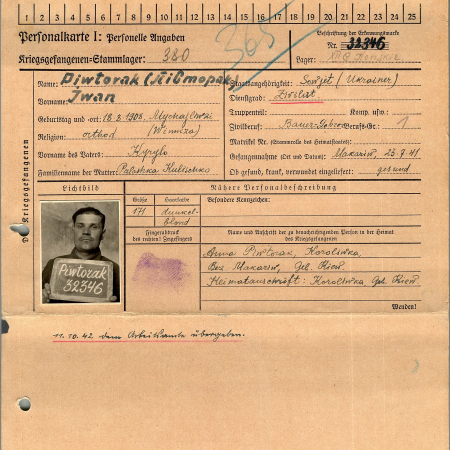 1 2 3 4 5 6 7 8 9 10 11 12 13 14 15 16 17 18 19 20 21 22 23 24 25
Personalkarte I: Personelle Angaben
Kriegsgefangenen-Stammlager: 380
365
Beschriftung der Erkennungsmarke
Nr. 32346
Lager:
Des Kriegsgefangenen
Name: Piwtorak (Півторак)
Vorname: Iwan
Geburtstag und -ort: 18.3.1903
Religion: orthod (Winniza)
Vorname des Vaters: Kyrylo
Familienname der Mutter:
Staatsangehörigkeit: Sowjet (Ukrainer)
Dienstgrad: Zivilat.
Truppenteil: Komp. usw.:
Zivilberuf: Bauer Berufs-Gr.: 1
Matrikel Nr. (Stammrolle des Heimatstaates):
Gefangennahme (Ort und Datum): Makariw, 23.7.41
Ob gesund, krank, verwundet eingeliefert: gesund
Lichtbild
Piwtorak
32346
Nähere Personalbeschreibung
Größe Haarfarbe
171 dunkel-
blond
Fingerabdruck
des rechten! Zeigefingers
Besondere Kennzeichen:
Name und Anschrift der zu benachrichtigenden Person in der Heimat
des Kriegsgefangenen
Anna Piwtorak, Koroliwka,
Bez. Makariw, Geb. Kiew.
Heimatanschrift: Koroliwka, Geb. Kiew
Wenden!
11.10.42 dem Arbeitsamte übergeben.